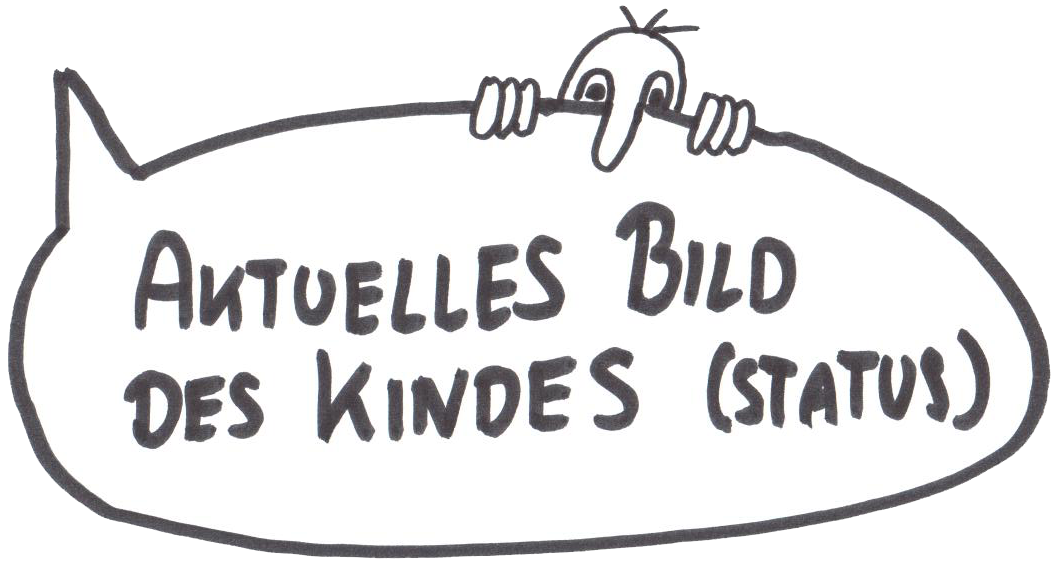 AKTUELLES BILD
DES KINDES (STATUS)